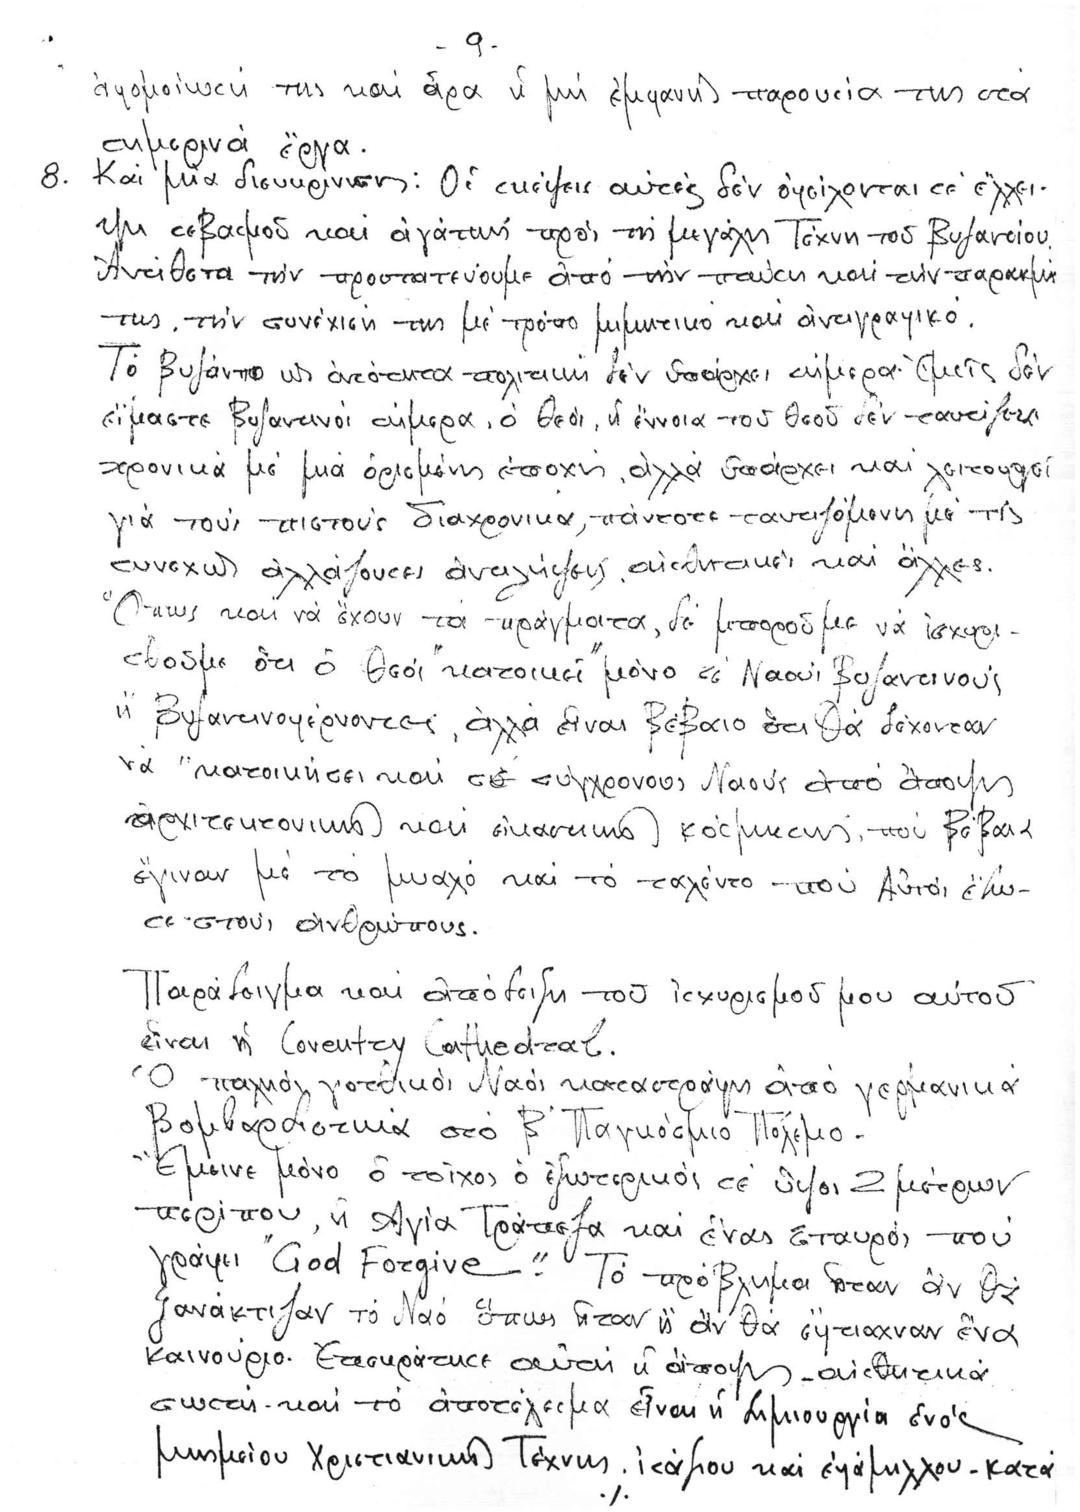 - 9 -
ἀφομοίωσή της καί ἄρα ἡ μή ἐμφανής παρουσία της στά
σημερινά ἔργα.
8. Καί μία διευκρίνιση: Οἱ σκέψεις αὐτές δέν ὀφείλονται σέ ἔλλει-
ψη σεβασμοῦ καί ἀγάπης πρός τή μεγάλη Τέχνη τοῦ Βυζαντίου.
Ἀντίθετα τήν προστατεύουμε ἀπό τήν παύση καί τήν παρακμή
της, τήν συνέχισή της μέ τρόπο μιμητικό καί ἀντιγραφικό.
Τό Βυζάντιο ὡς ὀντότητα πολιτική δέν ὑπάρχει σήμερα. Ἐμεῖς δέν
εἴμαστε Βυζαντινοί σήμερα, ὁ Θεός, ἡ ἔννοια τοῦ Θεοῦ δέν ταυτίζεται
χρονικά μέ μιά ὁρισμένη ἐποχή, ἀλλά ὑπάρχει καί λειτουργεῖ
γιά τούς πιστούς διαχρονικά, πάντοτε ταυτιζόμενη μέ τίς
συνεχῶς ἀλλάζουσες ἀντιλήψεις, αἰσθητικές καί ἄλλες.
Ὅπως καί νά ἔχουν τά πράγματα, δέ μποροῦμε νά ἰσχυρι-
σθοῦμε ὅτι ὁ Θεός "κατοικεῖ" μόνο σέ Ναούς Βυζαντινούς
ἤ Βυζαντινοφέρνοντες, ἀλλά εἶναι βέβαιο ὅτι θά δέχονταν
νά "κατοικήσει καί σέ σύγχρονους Ναούς ἀπό ἄποψη
ἀρχιτεκτονικῆς καί εἰκαστικῆς κόσμησης, πού βέβαια
ἔγιναν μέ τό μυαλό καί τό ταλέντο πού Αὐτός ἔδω-
σε στούς ἀνθρώπους.
Παράδειγμα καί ἀπόδειξη τοῦ ἰσχυρισμοῦ μου αὐτοῦ
εἶναι ἡ Coventry Cathedral.
Ὁ παληός γοτθικός Ναός καταστράφη ἀπό γερμανικά
βομβαρδιστικά στό Β' Παγκόσμιο Πόλεμο.
Ἔμεινε μόνο ὁ τοῖχος ὁ ἐξωτερικός σέ ὕψος 2 μέτρων
περίπου, ἡ Ἁγία Τράπεζα καί ἕνας σταυρός πού
γράφει "God Forgive". Τό πρόβλημα ἦταν ἄν θά
ξανάκτιζαν τό Ναό ὅπως ἦταν ἤ ἄν θά ἔφτιαχναν ἕνα
καινούριο. Ἐπεκράτησε αὐτή ἡ ἄποψη - αἰσθητικά
σωστή - καί τό ἀποτέλεσμα εἶναι ἡ δημιουργία ἑνός
μνημείου Χριστιανικῆς Τέχνης, ἰσάξιου καί ἐφάμιλλου - κατά
./.